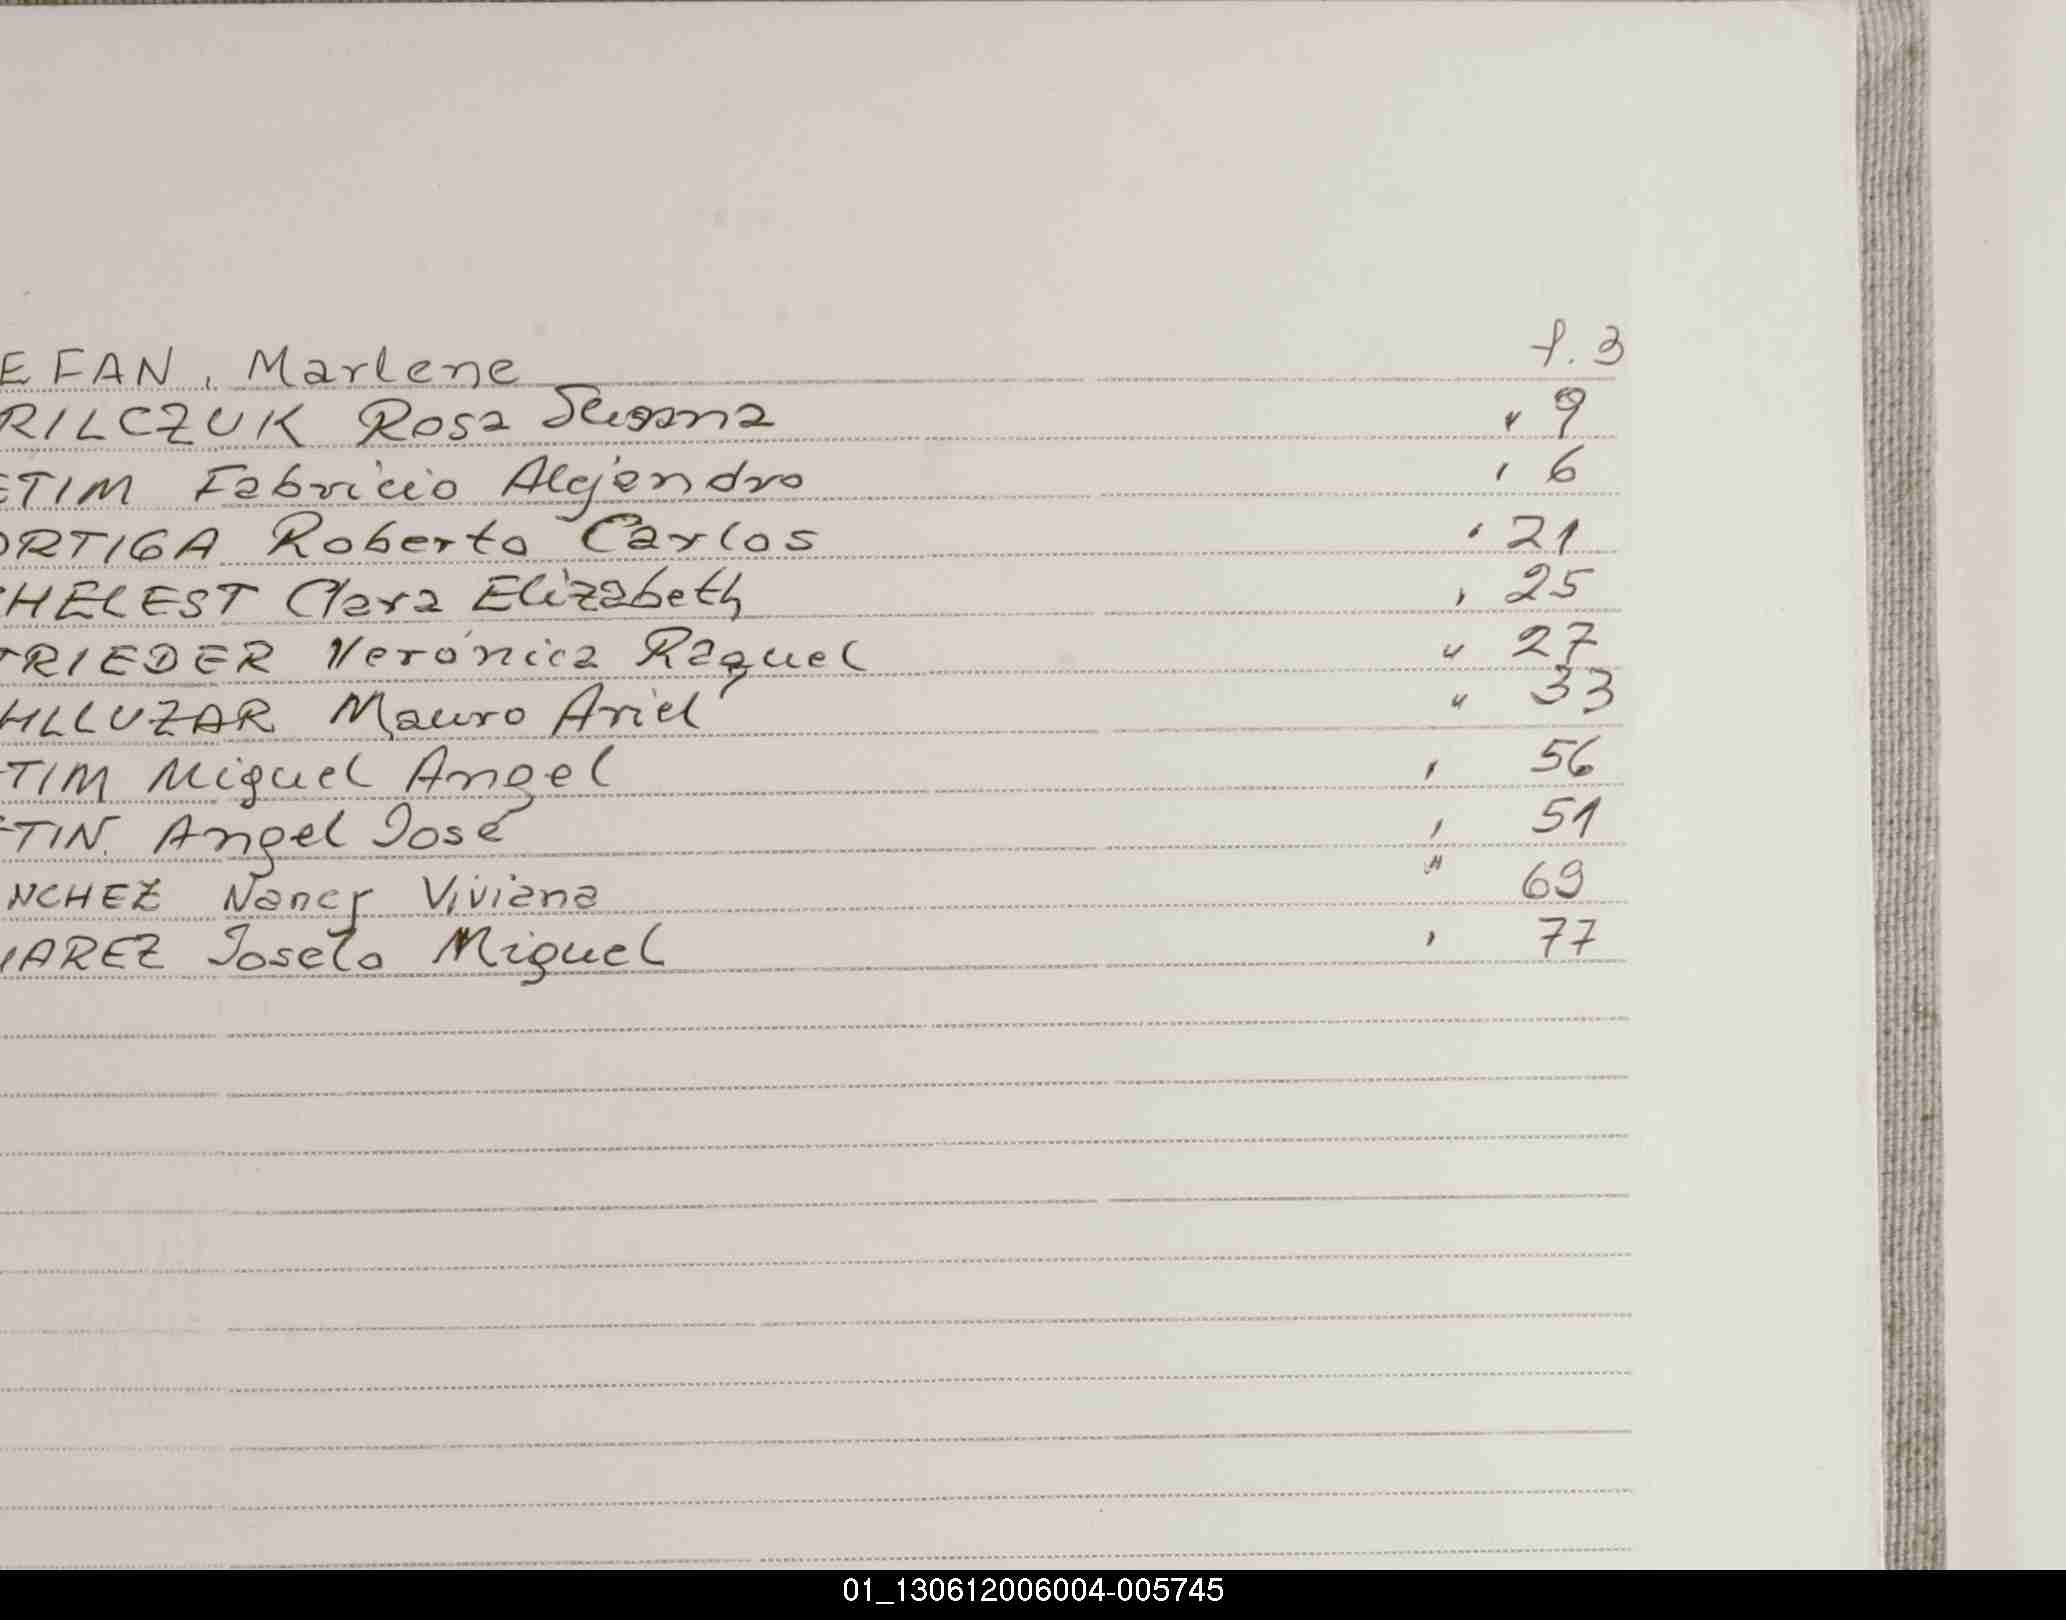 EFAN, Marlene f. 3
RILCZUK Rosa Susana " 9
ETIM Fabricio Alejandro " 6
ORTIGA Roberto Carlos " 21
HELEST Clara Elizabeth " 25
TRIEDER Verónica Raquel " 27
HLLUZAR Mauro Ariel " 33
TIM Miguel Angel " 56
TIN. Angel José " 51
NCHEZ Nancy Viviana " 69
AREZ Joselo Miguel " 77
01_130612006004-005745